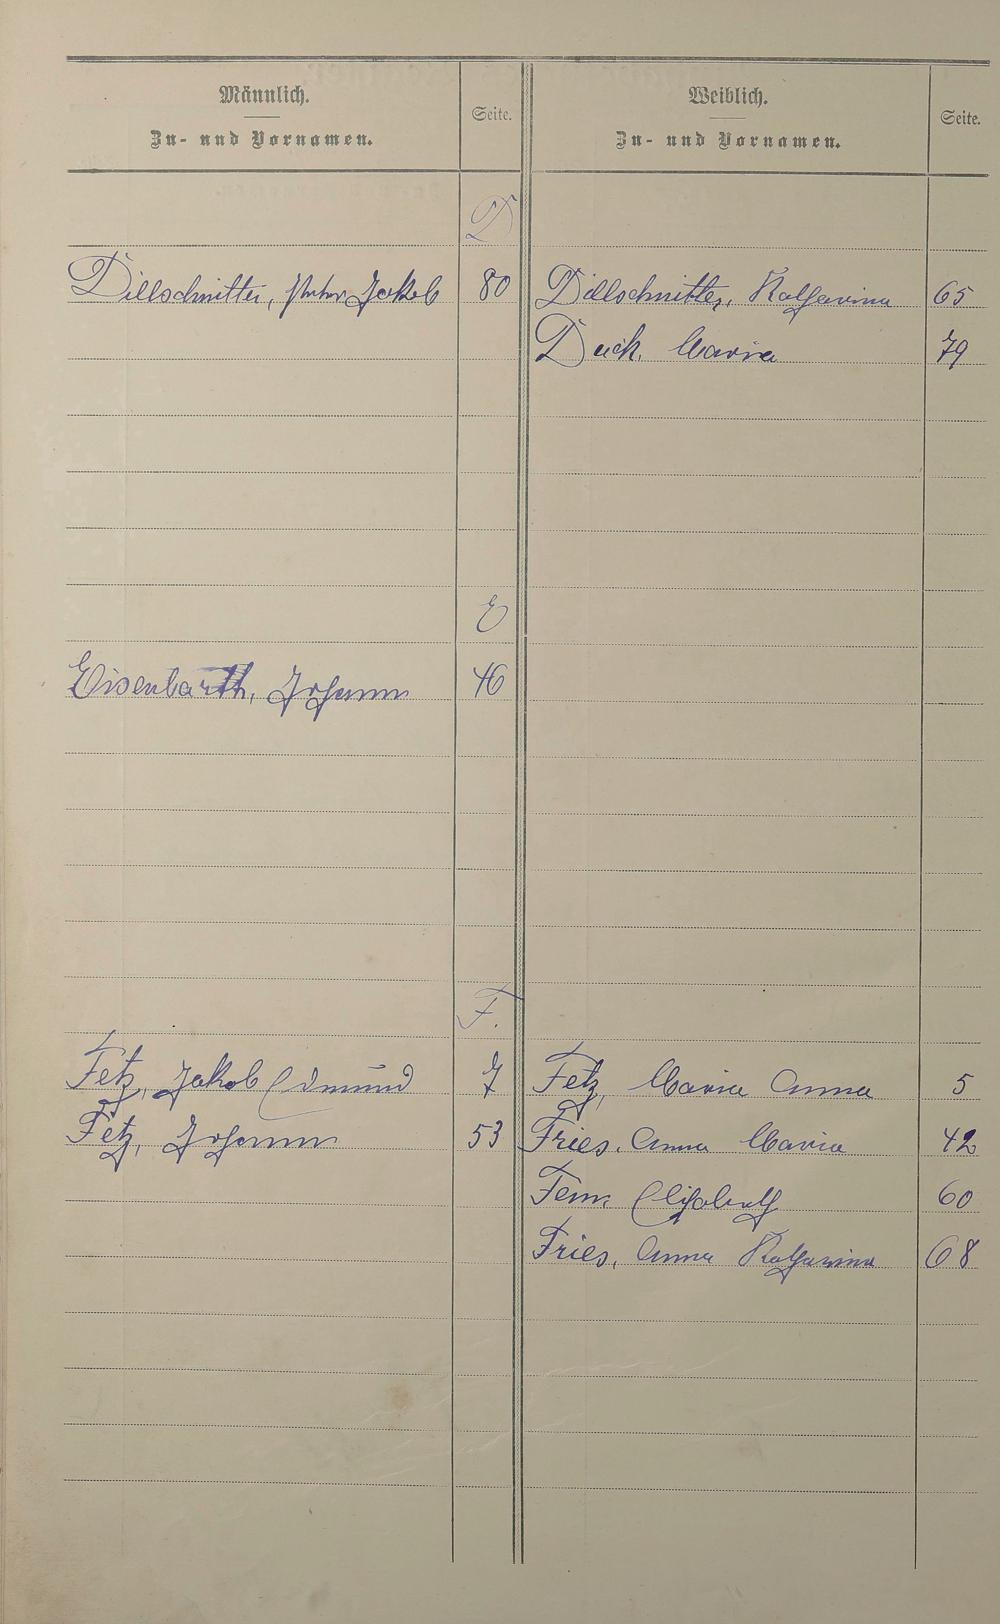 Männlich.
Zu- und Vornamen.
Seite.
Weiblich.
Zu- und Vornamen.
Seite.
D
Dillschnitter, Jakob 80 Dillschnitter, Katharina 65
Duch, Maria 79
E
Eisenbarth, Johann 46
F.
Fetz, Jakob Edmund 7 Fetz, Maria Anna 5
Fetz, Johann 53 Fries, Anna Maria 42
Elisabeth 60
Fries, Anna Katharina 68